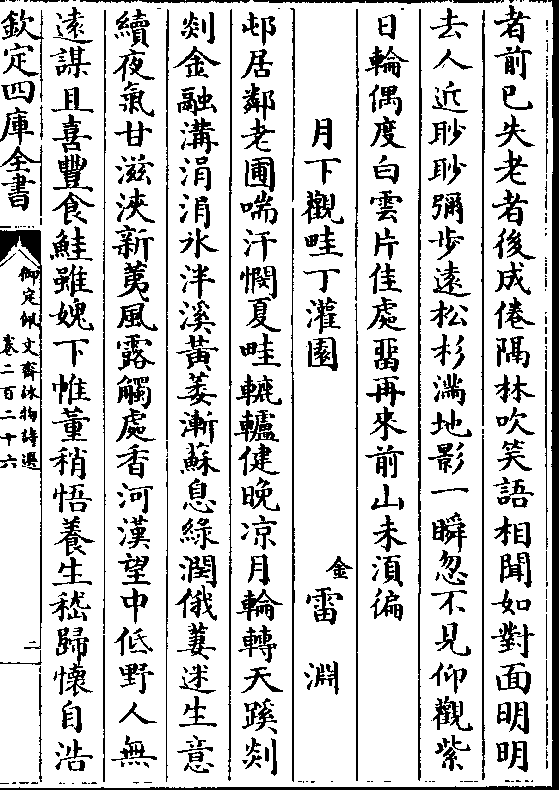 者前已失老者後成倦隅林吹笑語相聞如對面明明
去人近眇眇彌步遠松杉滿地影一瞬忽不見仰觀紫
日輪偶度白雲片佳處畱再來前山未須徧
月下觀畦丁灌園 金 雷淵
邨居鄰老圃喘汗憫夏畦轆轤健晚凉月輪轉天蹊剡
剡金融溝涓涓氷泮溪黃萎漸蘇息綠潤俄萋迷生意
續夜氣甘滋浹新荑風露觸處香河漢望中低野人無
遠謀且喜豐食鮭雖媿下帷董稍悟養生嵇歸懷自浩
欽定四庫全書
御定佩文齋詠物詩選
卷二百二十六
二